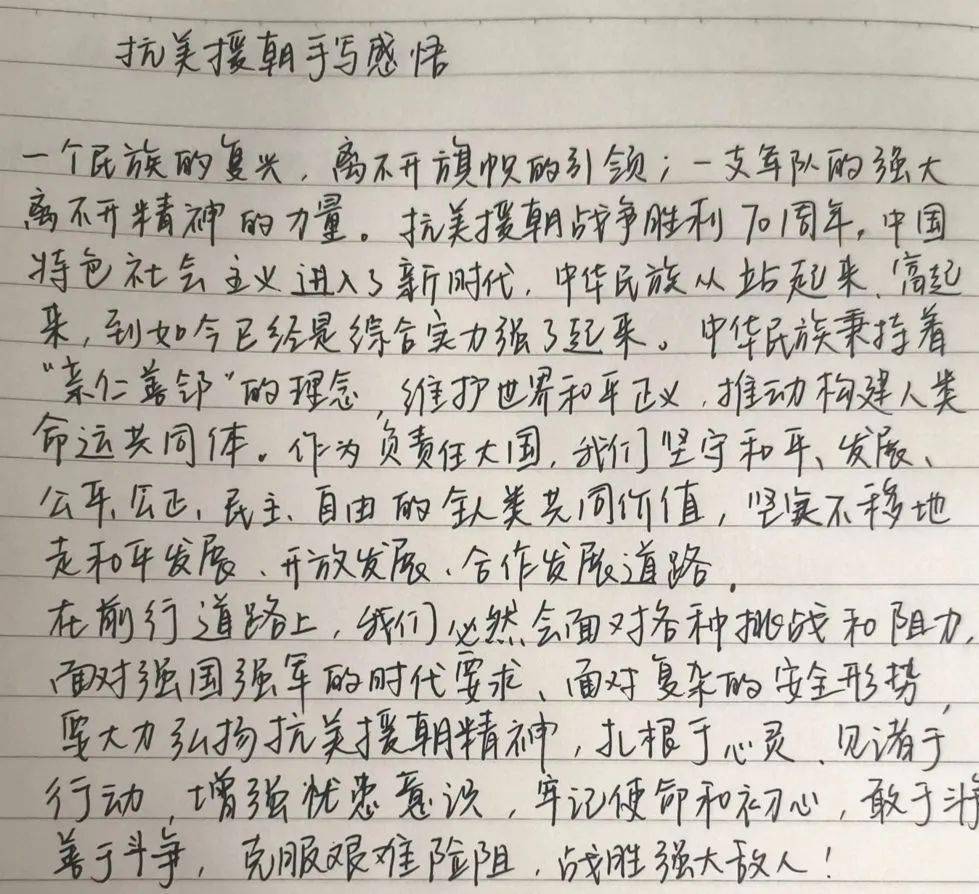 抗美援朝手写感悟
一个民族的复兴，离不开旗帜的引领；一支军队的强大
离不开精神的力量。抗美援朝战争胜利70周年，中国
特色社会主义进入了新时代，中华民族从站起来、富起
来，到如今已经是综合实力强了起来。中华民族秉持着
“亲仁善邻”的理念，维护世界和平正义，推动构建人类
命运共同体。作为负责任大国，我们坚守和平、发展、
公平、公正、民主、自由的全人类共同价值，坚定不移地
走和平发展、开放发展、合作发展道路。
在前行道路上，我们必然会面对各种挑战和阻力，
面对强国强军的时代要求、面对复杂的安全形势，
要大力弘扬抗美援朝精神，扎根于心灵、见诸于
行动，增强忧患意识，牢记使命和初心，敢于
善于斗争，克服艰难险阻，战胜强大敌人！